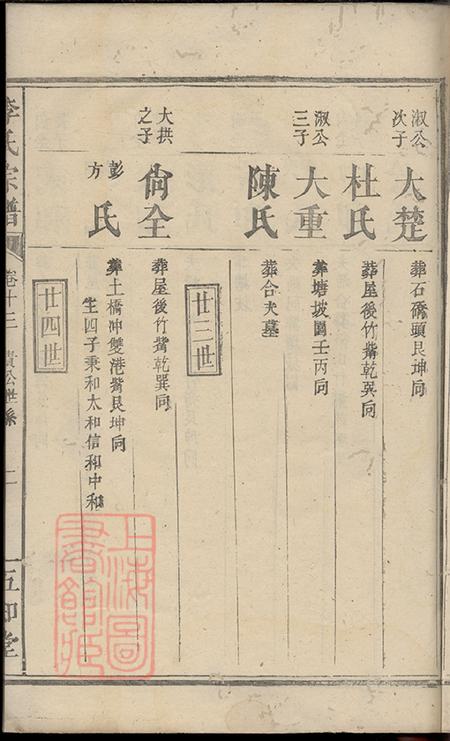 淑公次子
大楚
葬石磡頭艮坤向
杜氏
葬屋後竹觜乾巽向
淑公三子
大重
葬塘坡圍壬丙向
陳氏
葬合夫墓
廿三世
大拱之子
尙全
葬屋後竹觜乾巽向
彭方氏
葬土橋冲雙港觜艮坤向
生四子秉和太和信和中和
廿四世
李氏宗譜
卷十二
公世系
二
堂
上海圖書館藏